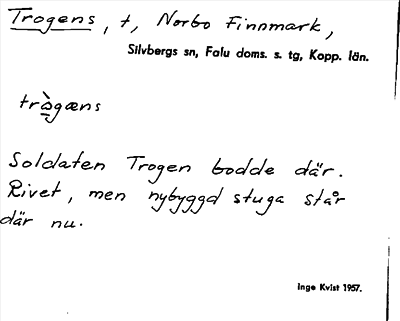 Trogens, t, Norbo Finnmark,
Silvbergs sn, Falu doms. s. tg, Kopp. län.
trògæns
Soldaten Trogen bodde där.
Rivet, men nybyggd stuga står
där nu.
Inge Kvist 1957.